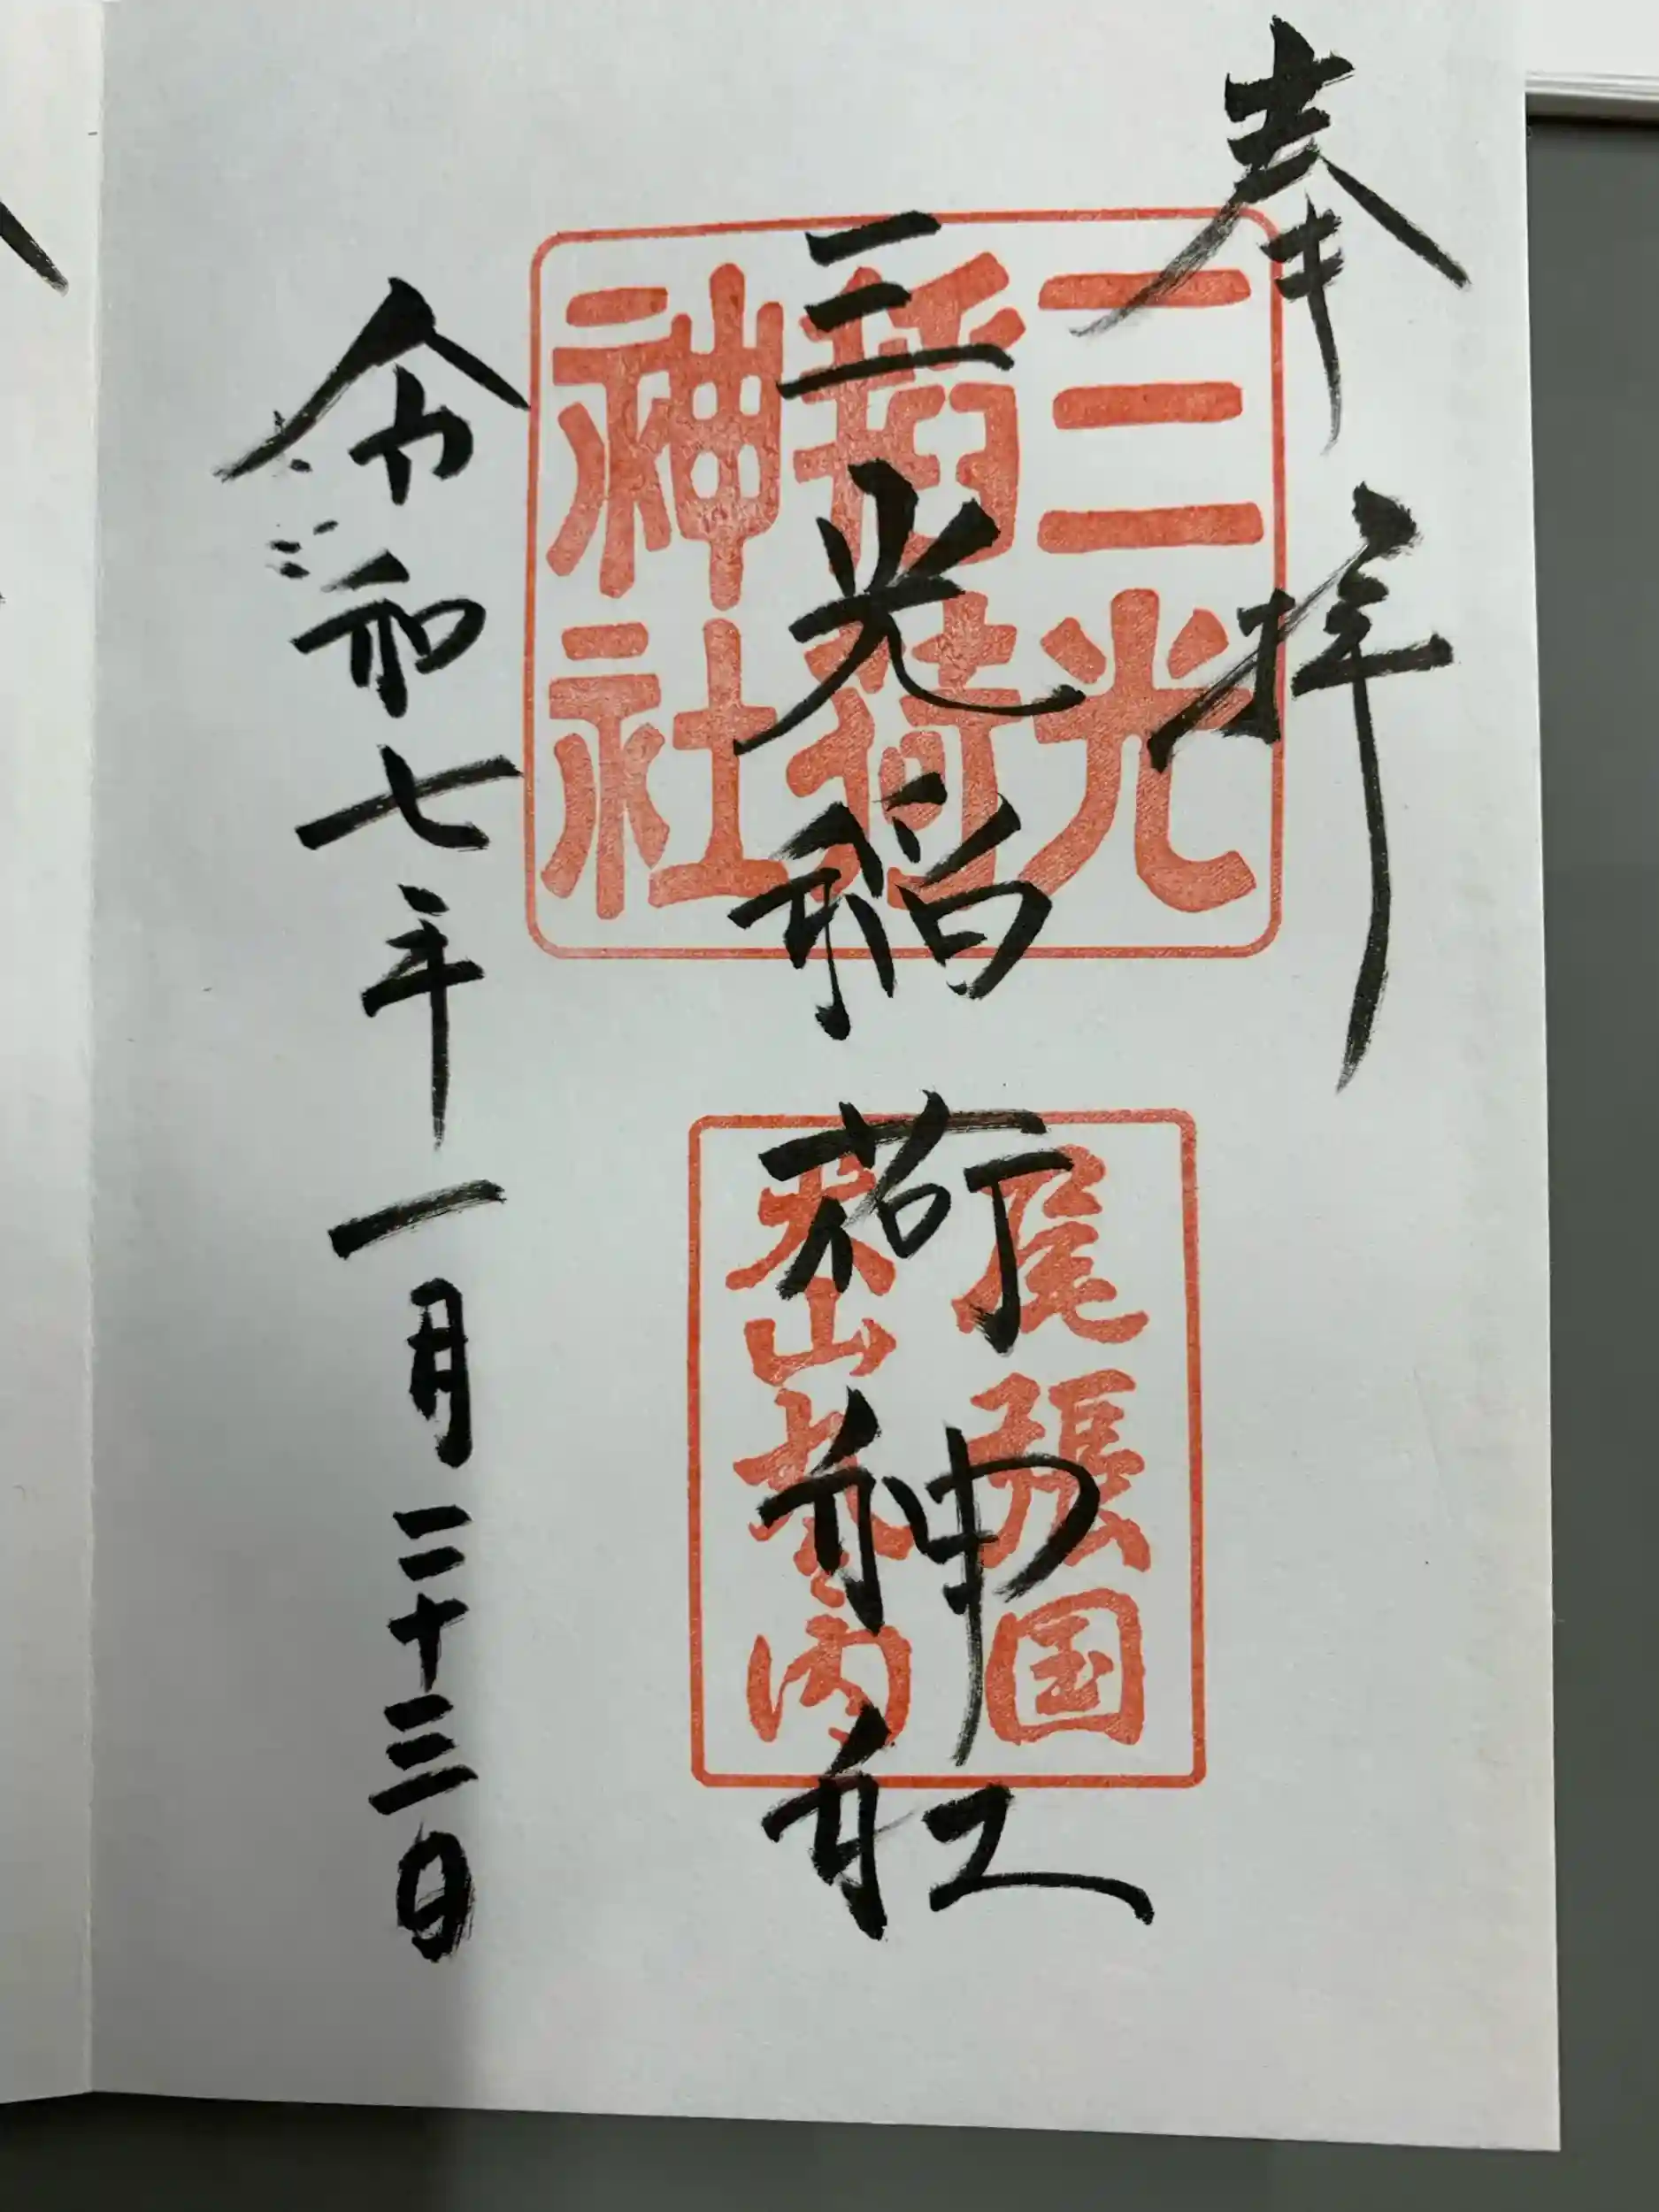 奉拝
三光稲荷神社
令和七年一月二十三日
三光
稲荷
神社
尾張国
犬山城内